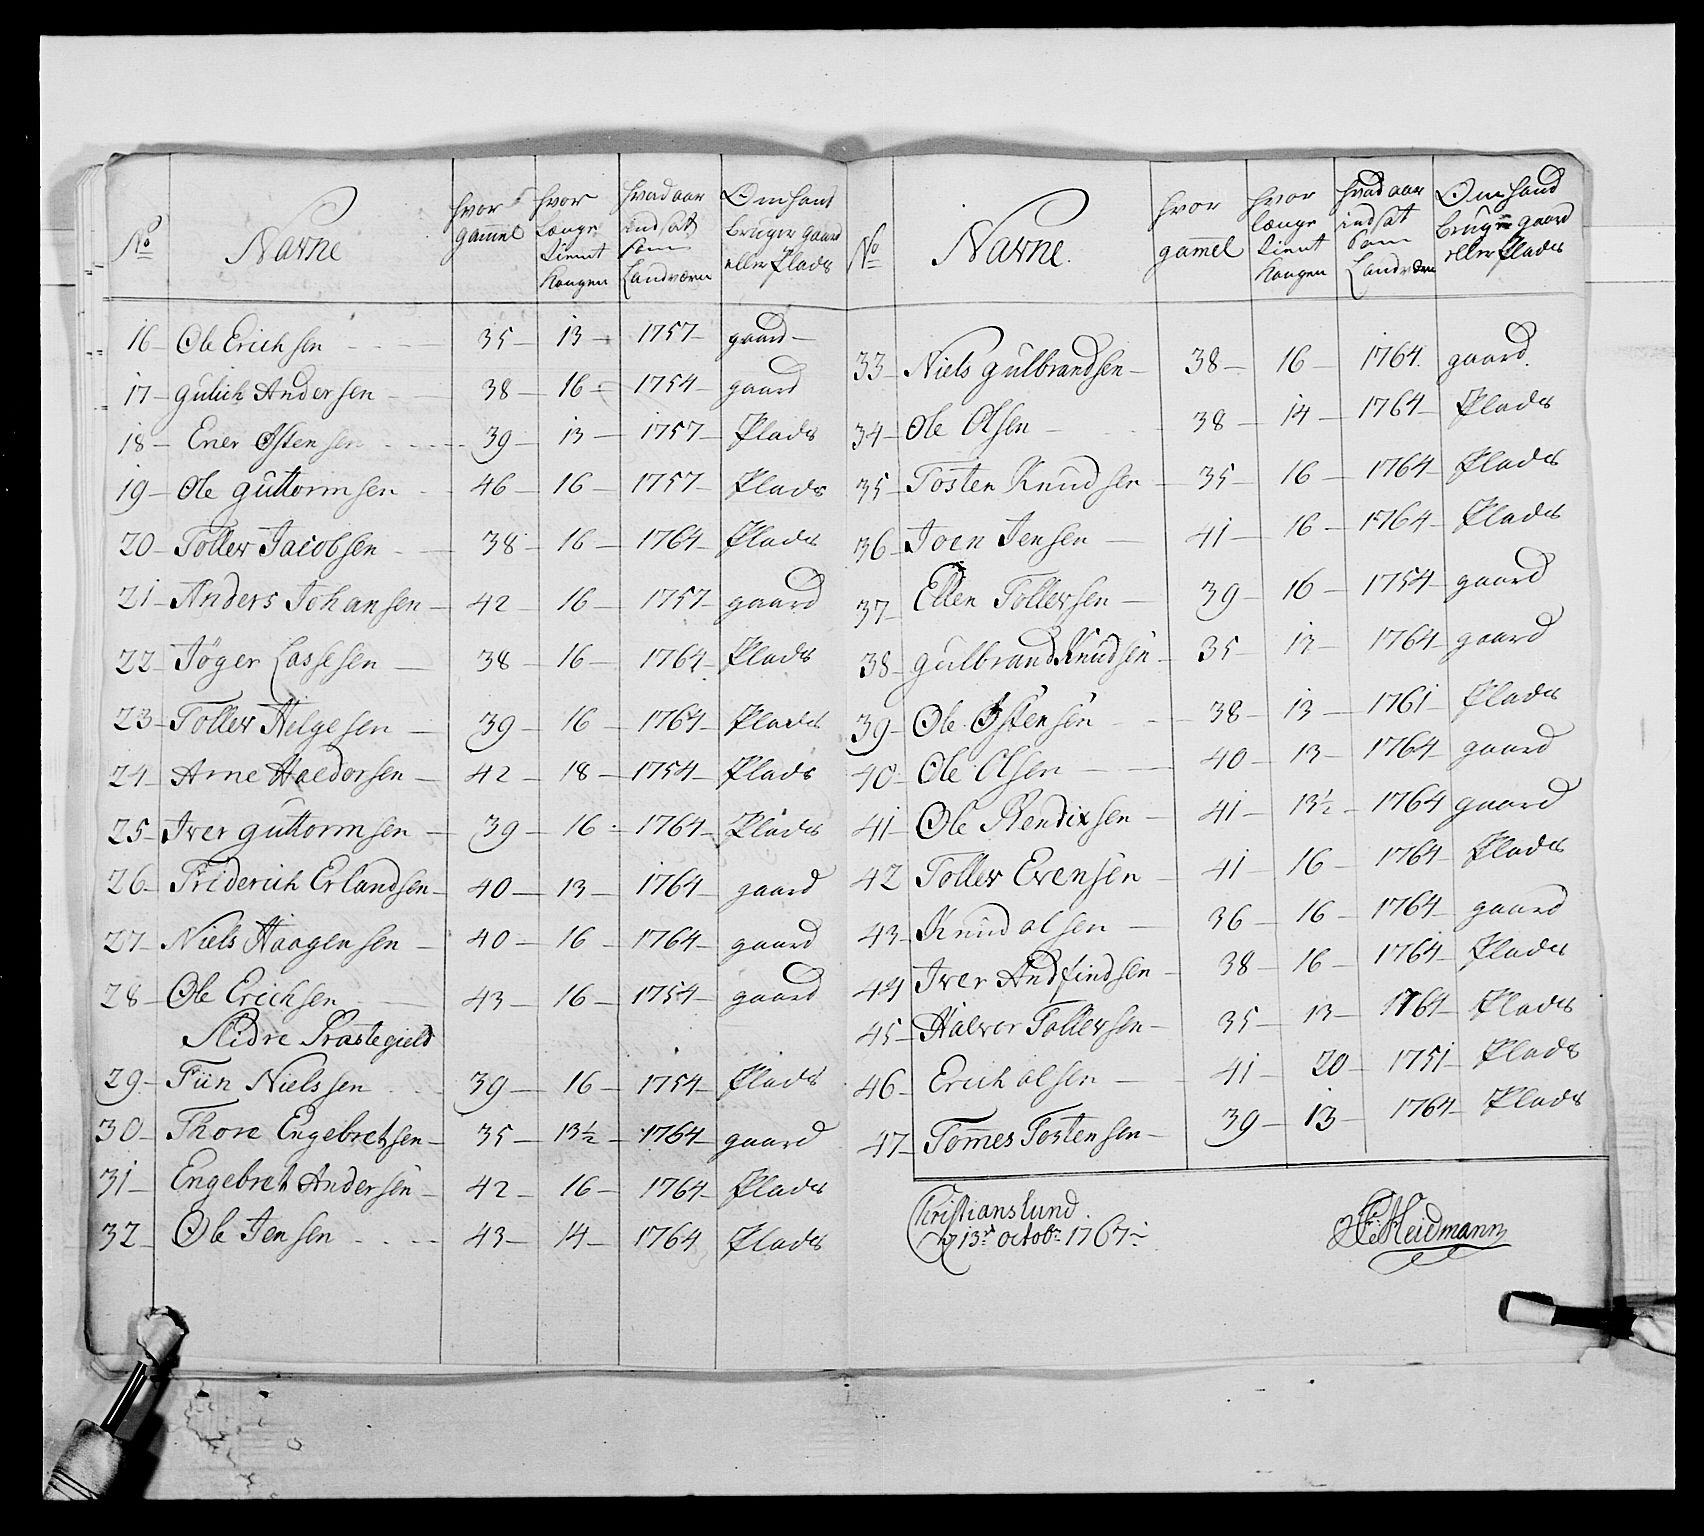 No Navne hvor gammel hvor længe tient kongen hvad aar indsat som Landværn Om hand bruger gaard eller Plads
16 Ole Erichsen 35 13 1757 gaard
17 Gulich Andersen 38 16 1754 gaard
18 Ener Østensen 39 13 1757 Plads
19 Ole Guttormsen 46 16 1757 Plads
20 Tollev Jacobsen 38 16 1764 Plads
21 Anders Johansen 42 16 1757 gaard
22 Jøger Lassesen 38 16 1764 Plads
23 Tollev Helgesen 39 16 1764 Plads
24 Arne Haldorsen 42 18 1754 Plads
25 Iver Guttormsen 39 16 1764 Plads
26 Friderich Erlandsen 40 13 1764 gaard
27 Niels Haagensen 40 16 1764 gaard
28 Ole Erichsen 43 16 1754 gaard
Slidre Præstegield
29 Fün Nielssen 39 16 1754 Plads
30 Thore Engebretsen 35 13½ 1764 gaard
31 Engebret Andersen 42 16 1764 Plads
32 Ole Jensen 43 14 1764 Plads
No Navne. hvor gammel hvor længe tient kongen hvad aar indsat som Landværn Om hand bruger gaard eller Plads
33 Niels Gulbrandsen 38 16 1764 gaard
34 Ole Olsen 38 14 1764 Plads
35 Tosten Knudsen 35 16 1764 Plads
36 Joen Jensen 41 16 1764 Plads
37 Ellen Tollevsen 39 16 1754 gaard
38 Gulbrand Knudsen 35 13 1764 gaard
39 Ole Østensen 38 13 1761 Plads
40 Ole Olsen 40 13 1764 gaard
41 Ole Bendixsen 41 13½ 1764 gaard
42 Tollev Evensen 41 16 1764 Plads
43 Knud olsen 36 16 1764 gaard
44 Iver Andfindsen 38 16 1764 Plads
45 Halvor Tollevsen 35 13 1764 Plads
46 Erich olsen 41 20 1751 Plads
47 Tommes Tostensen 39 13 1764 Plads
Christianslund
13de octobr 1767
Heidmann